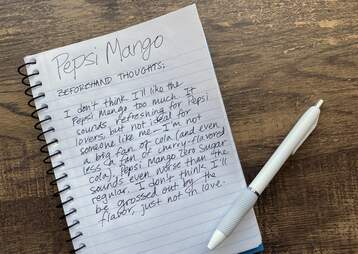 Pepsi Mango
BEFOREHAND THOUGHTS:
I don't think I'll like the
Pepsi Mango too much. It
sounds refreshing for Pepsi
lovers, but not ideal for
someone like me—I'm not
a big fan of cola (and even
less a fan of cherry-flavored
cola). Pepsi Mango Zero Sugar
sounds even worse than the
regular. I don't think I'll
be grossed out by the
flavor, just not in love.